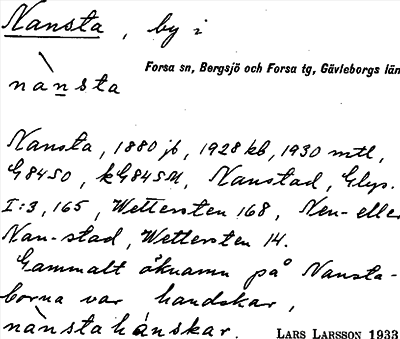 Nansta, by i
Forsa sn, Bergsjö och Forsa tg, Gävleborgs län
nànsta
Nansta, 1880 jb, 1928 kb, 1930 mtl,
G8450, kG845M, Nanstad, Glyp.
I:3, 165, Wettersten 168, Nen- eller
Nan-stad, Wettersten 14.
Gammalt öknamn på Nansta-
borna var handskar,
nànstahánskar.
LARS LARSSON 1933